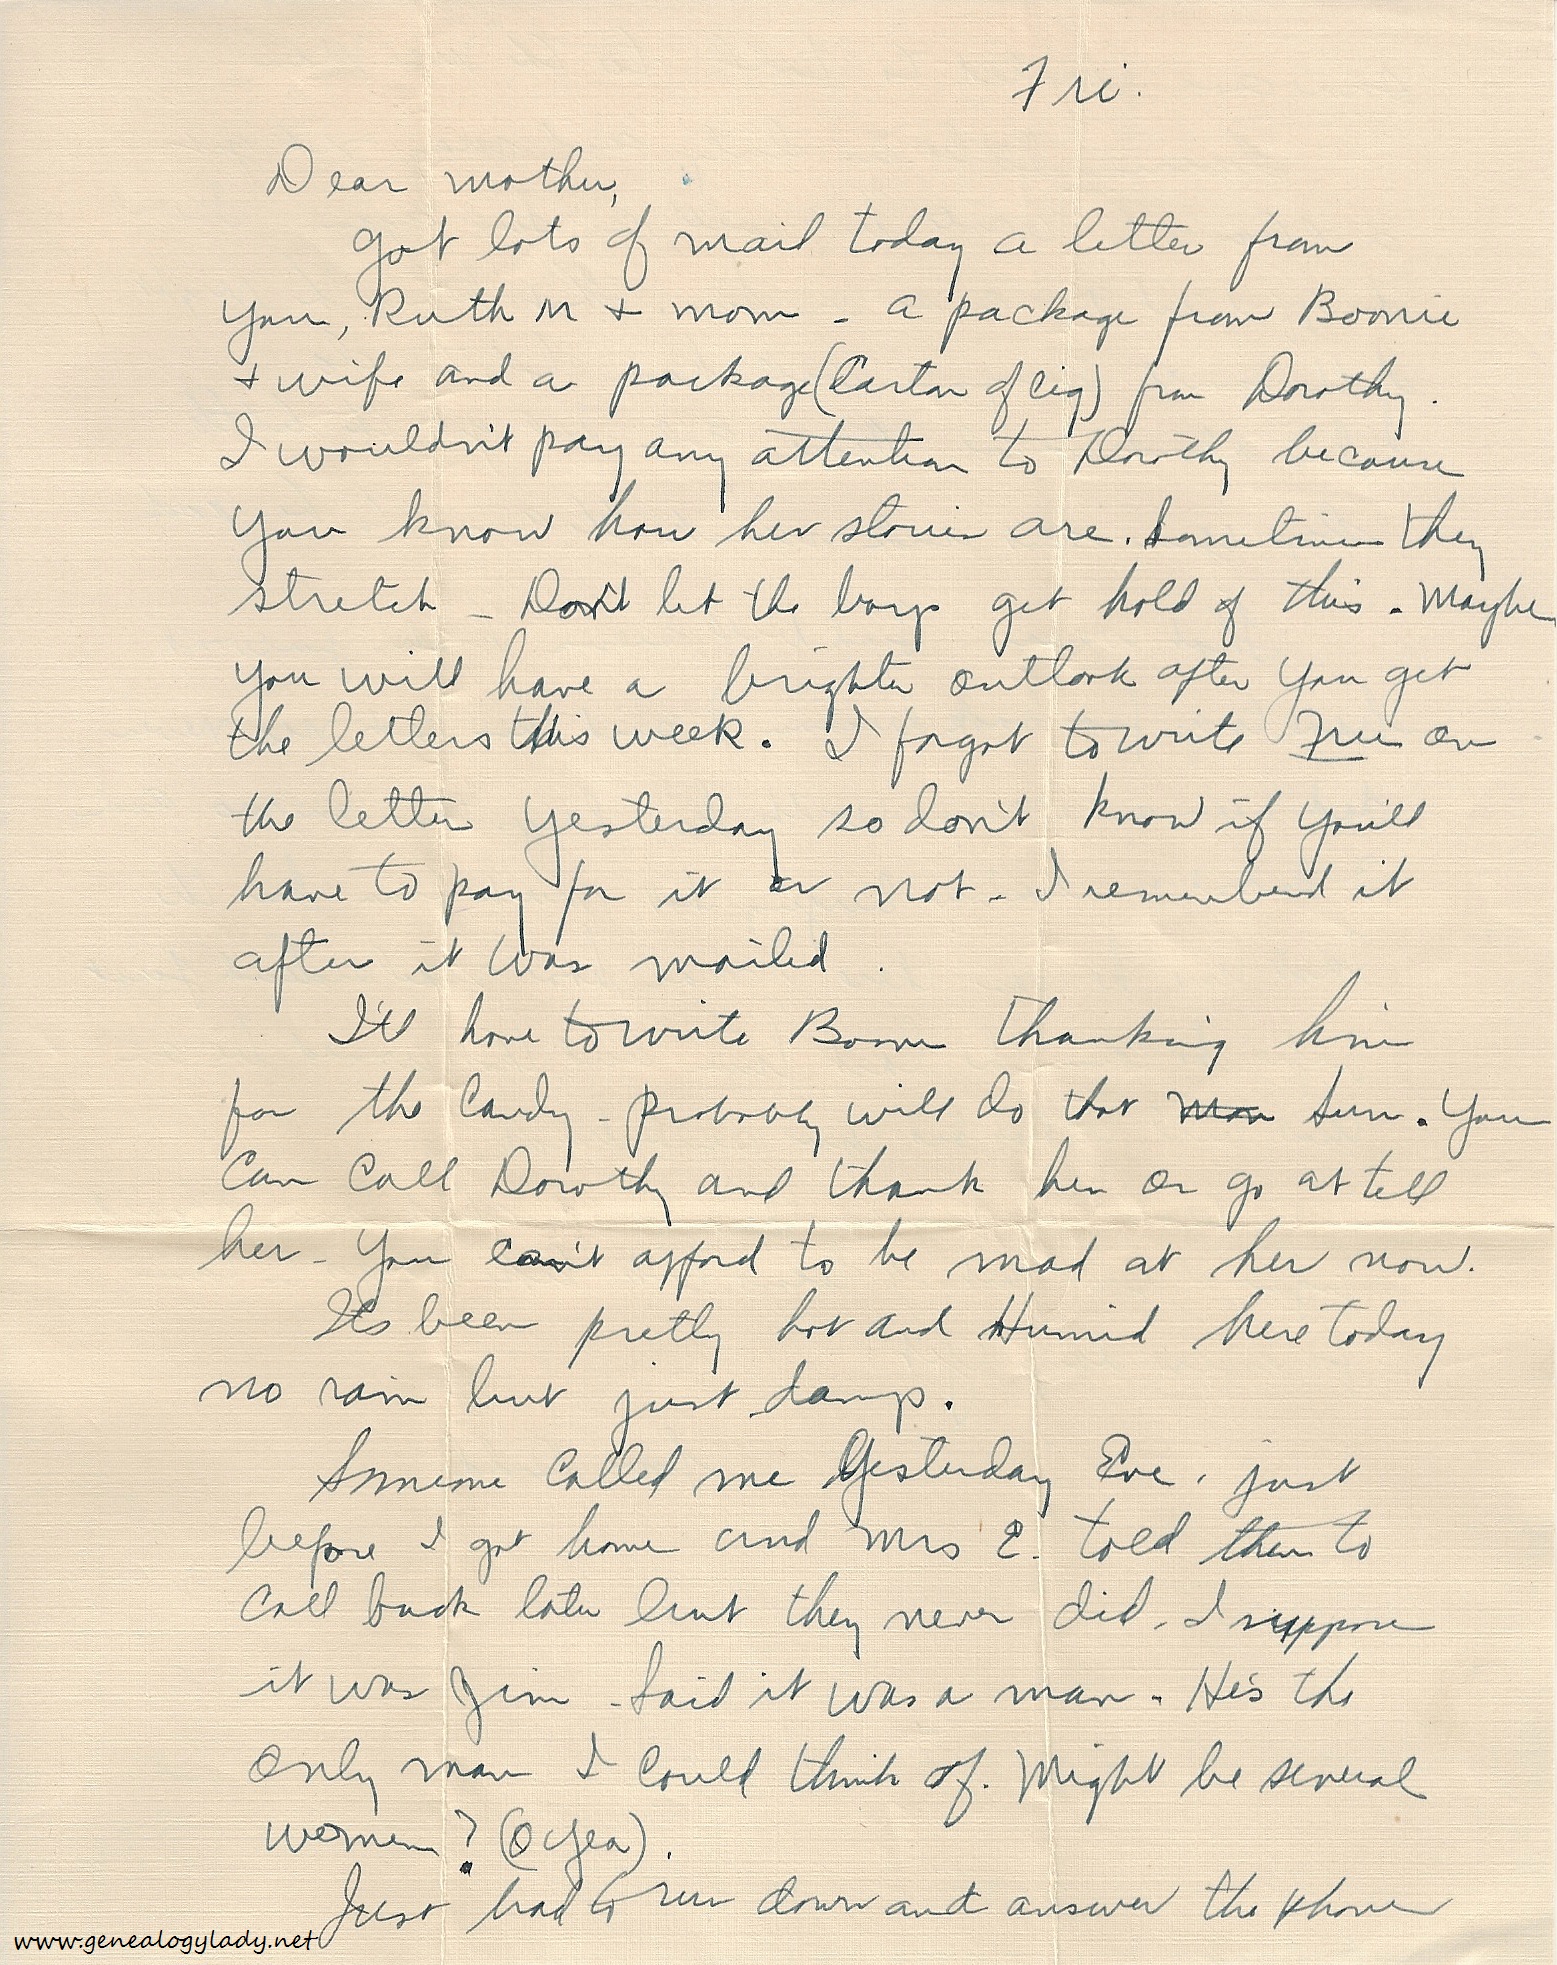 Fri.
Dear Mother,
Got lots of mail today a letter from
you, Ruth M + mom - a package from Boonie
+ wife and a package (Carton of cig) from Dorothy.
I wouldn't pay any attention to Dorothy because
you know how her stories are. Sometimes they
stretch - Don't let the boys get hold of this. Maybe
you will have a brighter outlook after you get
the letters this week. I forgot to write Free on
the letter yesterday so don't know if you'll
have to pay for it or not - I remembered it
after it was mailed.
I'll have to write Boonie thanking him
for the candy - probably will do that Mon Sun. You
can call Dorothy and thank her or go at tell
her - You can't afford to be mad at her now.
Its been pretty hot and Humid here today
no rain but just damp.
Someone called me yesterday Eve. just
before I got home and Mrs E. told them to
call back later but they never did. I suppose
it was Jim - Said it was a man. He's the
only man I could think of. Might be several
women? (O yea).
Just had to run down and answer the phone
www.genealogylady.net